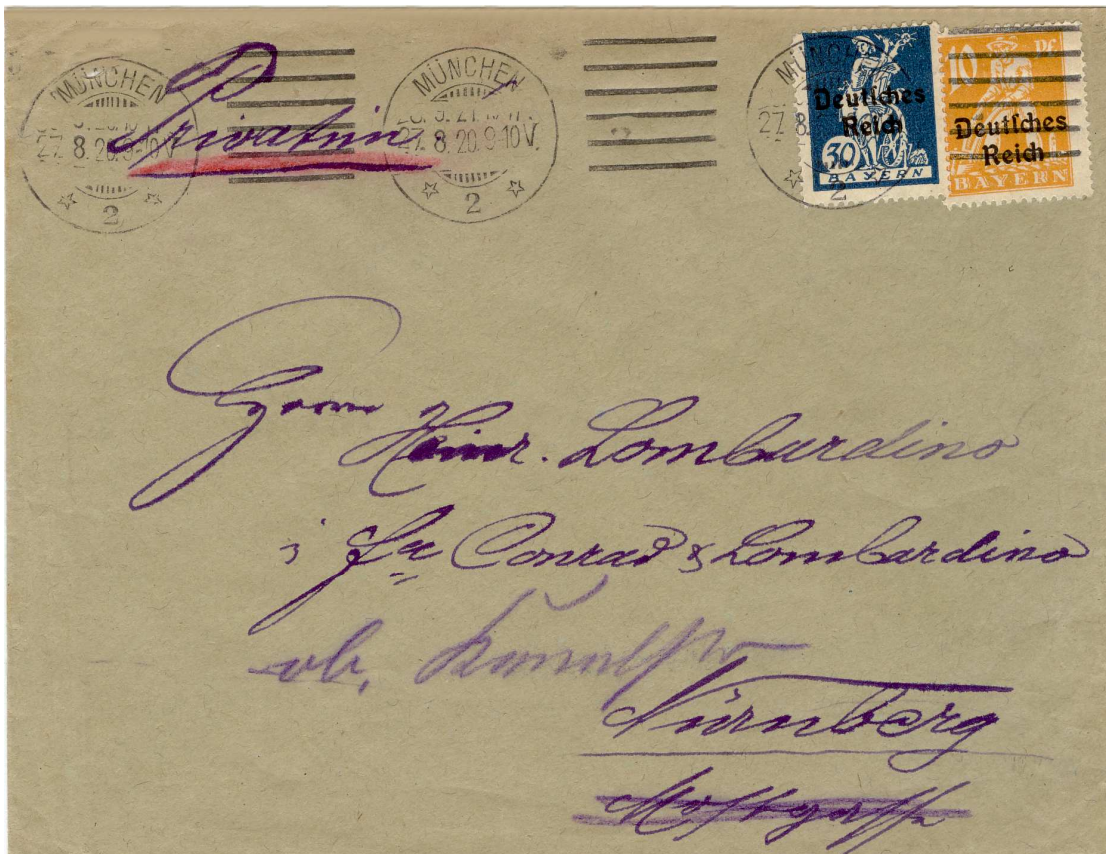 MÜNCHEN
27.8.20.9-10V.
2
MÜNCHEN
27.8.20.9-10V.
2
MÜNCHEN
27.8.
2
30
Deutsches
Reich
BAYERN
10 Pf
Deutsches
Reich
BAYERN
Privatim
Herrn
Heinr. Lombardino
i Fa Conrad & Lombardino
ob.
Nürnberg